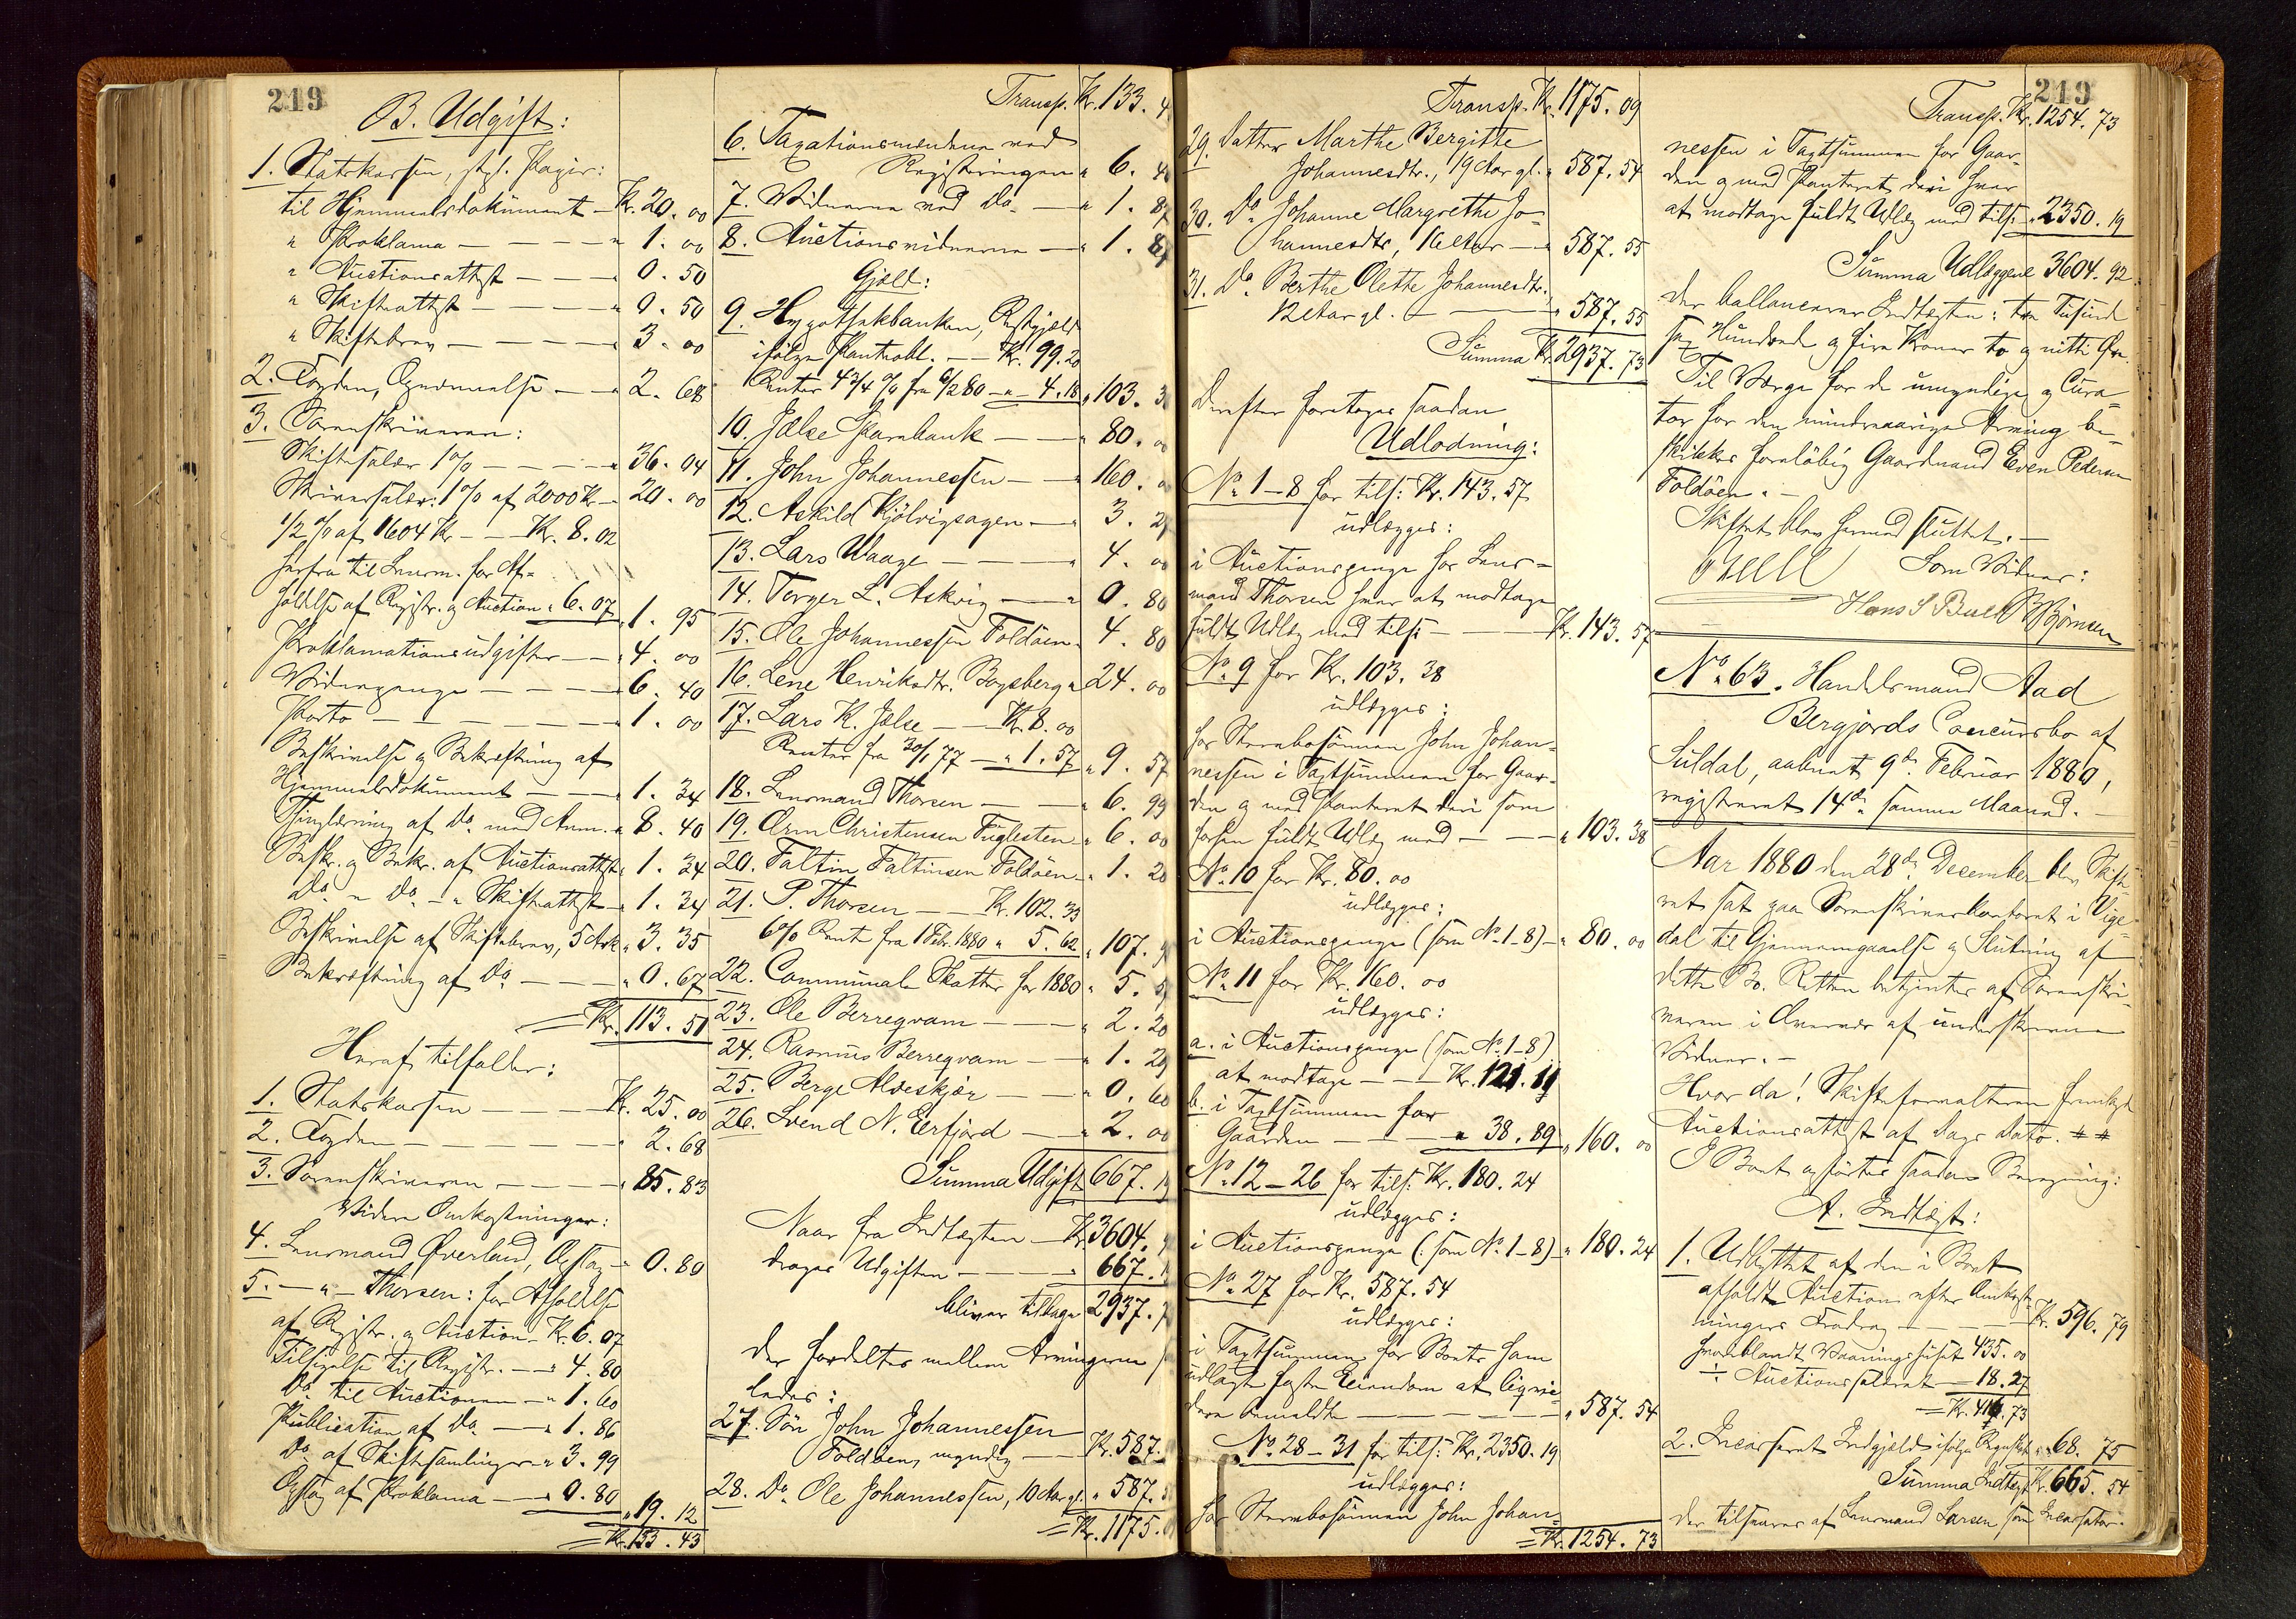 219
B. Udgift:
1. Statskassen, stpl. Papir:
til Hjemmelsdokument — Kr. 20. 00
" Proklama — — — — " 1. 00
" Auctionsattest — — — " 0. 50
" Skifteattest — — — — " 0. 50
" Skiftebrev — — — — " 3. 00
2. Fogden, Opnævnelse — — " 2. 68
3. Sorenskriveren:
Skiftesalær 1 % — — — — " 36. 04
Skriversalær: 1 % af 2000 Kr — 20. 00
1/2 % af 1604 Kr — — Kr. 8. 02
herfra til Lensm. for Af-
holdelse af Registr. og Auction " 6. 07 " 1. 95
Proklamationsudgifter — — " 4. 00
Vidnepenge — — — — " 6. 40
Porto — — — — — — " 1. 00
Beskrivelse og Bekræftning af
Hjemmelsdokument — — — " 1. 34
Thinglæsning af Do. med Anm. " 8. 40
Beskr. og Bekr. af Auctionsattest " 1. 34
Do. " Do. — " Skifteattest — " 1. 34
Beskrivelse af Skiftebrev, 5 Ark " 3. 35
Bekræftning af Do. — — — " 0. 67
= Kr. 113. 51
Heraf tilfalder:
1. Statskassen — — — Kr. 25. 00
2. Fogden — — — — — " 2. 68
3. Sorenskriveren — — — — " 85. 83
Videre Omkostninger:
4. Lensmand Øverland, Opslag — " 0. 80
5. — " — Thorsen: for Afholdelse
af Registr. og Auction — Kr. 6. 07
Tilsigelse til Registr. — " 4. 80
Do. til Auctionen — " 1. 60
Publication af Do. — " 1. 86
Do. af Skiftesamlinger " 3. 99
Opslag af Proklama — " 0. 80 " 19. 12
= Kr. 133. 43
Transp. Kr. 133. 4
6. Taxationsmændene ved
Registreringen " 6. 40
7. Vidnerne ved Do. — " 1. 87
8. Auctionsvidnerne — " 1. 87
Gjæld:
9. Hypothekbanken, Restgjæld
ifølge Pantobl. — — Kr. 99. 20
Renter 4 3/4 % fra 6/2 80 — " — 4. 18 " 103. 3
10. Jælse Sparebank — — " 80. 00
11. John Johannessen — — " 160. 0
12. Askild Kjølvigsagen — " 3. 2
13. Lars Waage — — — " 4. 00
14. Torger L. Askvig — — " 0. 80
15. Ole Johannessen Foldøen " 4. 80
16. Lene Henriksdtr. Bogsberg " 24. 00
17. Lars K. Jelse — — Kr. 8. 00
Renter fra 30/1 77 — " 1. 57 " 9. 57
18. Lensmand Thorsen — — " 6. 99
19. Orm Christensen Fuglesten " 6. 00
20. Faltin Faltinsen Foldøen " 1. 20
21. P. Thorsen — — Kr. 102. 33
6 % Rente fra 1 Febr. 1880 " 5. 62 " 107. 9
22. Communale Skatter for 1880 " 5. 5
23. Ole Berreqvam — — — " 2. 20
24. Rasmus Berreqvam — — " 1. 29
25. Berge Alveskjær — — " 0. 60
26. Svend N. Eerfjord — — " 2. 00
Summa Udgift 667. 19
Naar fra Indtægten — Kr 3604. 9
drages Udgiften — — — " 667. 1
bliver tilbage 2937. 7
der fordeltes mellem Arvingerne s
ledes:
27. Søn John Johannessen
Foldøen, myndig — Kr. 587.
28. Do. Ole Johannessen, 10 Aar gl. " 587.
= Kr. 1175. 0
Transp. Kr. 1175. 09
29. Datter Marthe Bergitte
Johannesdtr., 19 Aar gl. " 587. 54
30. Do. Johanne Margrethe Jo-
hannesdtr, 16 Aar — " 587. 55
31. Do. Berthe Olette Johannesdtr.,
12 Aar gl. — — — " 587. 55
Summa Kr. 2937. 73
Derefter foretoges saadan
Udlodning:
No. 1–8 for tils: Kr. 143. 57
udlægges:
i Auctionspenge hos Lens-
mand Thorsen hver at modtage
fuldt Udlæg med tils: — — — Kr. 143. 57
No. 9 for Kr. 103. 38
udlægges:
hos Stervbosønnen John Johan-
nessen i Taxtsummen for Gaar-
den og med Panteret deri som
forhen fuldt Udlæg med — — — " 103. 38
No. 10 for Kr. 80. 00
udlægges:
i Auctionspenge (som No. 1–8) — " 80. 00
No. 11 for Kr. 160. 00
udlægges:
a. i Auctionspenge (som No. 1–8)
at modtage — — Kr. 121. 11
b. i Taxtsummen for
Gaarden — — — " 38. 89 " 160. 00
No. 12–26 for tils: Kr. 180. 24
udlægges:
i Auctionspenge (: som No. 1–8) — " 180. 24
No. 27 for Kr. 587. 54
udlægges:
i Taxtsummen for Boets ham
udlagte faste Eiendom at liqvi-
dere bemeldte — — — — — " 587. 54
No. 28–31 for tils: Kr. 2350. 19
udlægges:
hos Stervbosønnen John Johan-
= Kr. 1254. 73
219
Transp. Kr. 1254. 73
nessen i Taxtsummen for Gaar-
den og med Panteret deri hver
at modtage fuldt Udlæg med tils: " 2350. 19
Summa Udlæggene 3604. 92
der ballancerer Indtægten: tre Tusind
sex Hundrede og fire Kroner to og nitti Øre.
Til Værge for de umyndige og Cura-
tor for den mindreaarige Arving be-
skikkes foreløbig Gaardmand Even Pedersen
Foldøen. —
Skiftet blev hermed sluttet. —
Buell Som Vidner:
Hans S Buell B Bjørnsen
No. 63. Handelsmand Aad
Bergjords Concursbo af
Suldal, aabnet 9de. Februar 1880,
registreret 14de. samme Maaned. —
Aar 1880 den 28de. December blev Skifte-
ret sat paa Sorenskriverkontoret i Vige-
dal til Gjennemgaaelse og Slutning af
dette Bo. Retten betjentes af Sorenskri-
veren i Overvær af underskrevne
Vidner. —
Hvor da! Skifteforvalteren fremlagde
Auctionsattest af Dags Dato. ##
I Boet opførtes saadan Beregning:
A. Indtægt:
1. Udbyttet af den i Boet
afholdte Auction efter Omkost-
ningers Fradrag — — — Kr. 596. 79
hvoriblandt Vaaningshuset 435. 00
÷ Auctionssalæret — 18. 27
= Kr. 416. 73
2. Incasseret Indgjæld ifølge Regnskab " 68. 75
Summa Indtægt Kr. 665. 54
der tilsvares af Lensmand Larsen som Incassator.